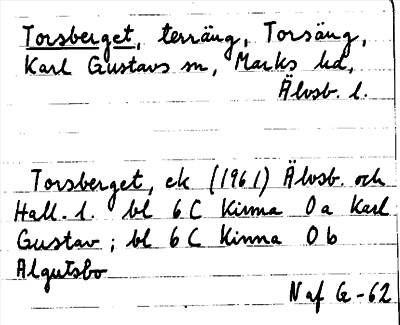 Torsberget, terräng, Torsäng,
Karl Gustavs sn, Marks hd,
Älvsb. l.
Torsberget, ek (1961) Älvsb. och
Hall. l. bl 6C Kinna 0a Karl
Gustav; bl 6C Kinna 0b
Algutsbo
Naf G-62